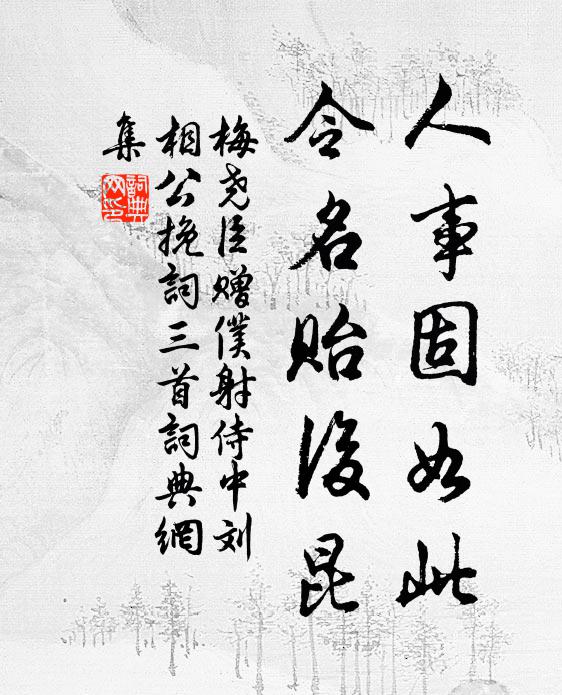 人事固如此
令名貽後昆
梅尧臣赠僕射侍中刘
相公挽詞三首詞典網
集
詞典网印